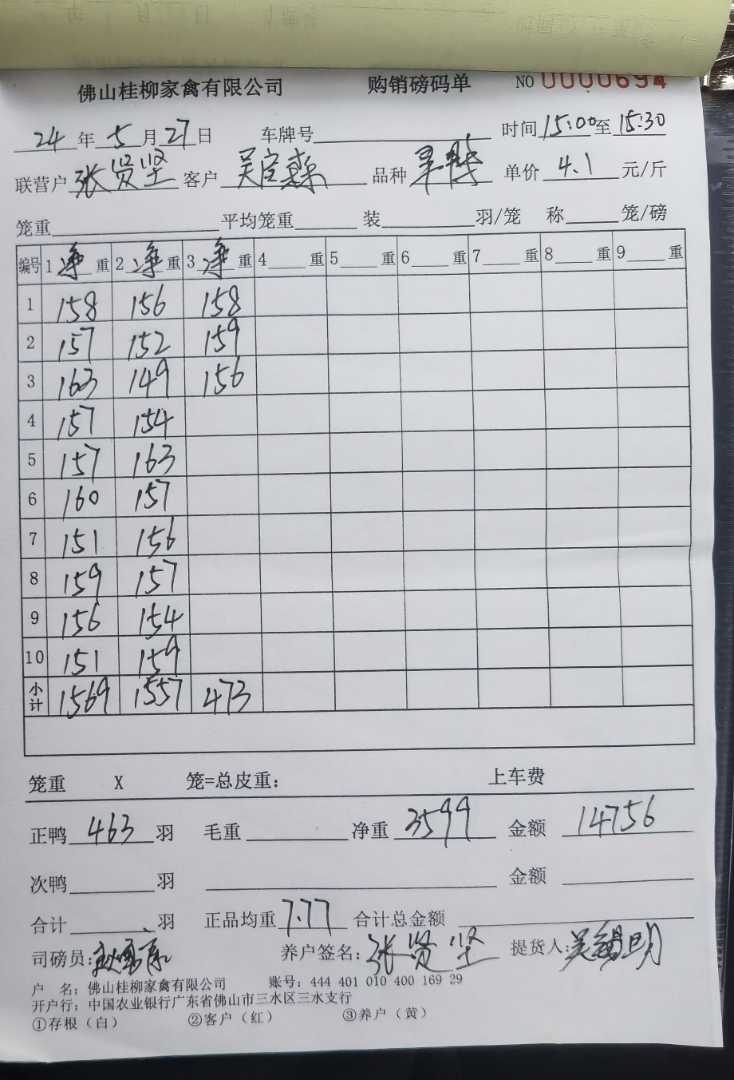 佛山桂柳家禽有限公司 购销磅码单 NO 0000694
24 年 5 月 27 日 车牌号 时间 15:00 至 15:30
联营户 张贤坚 客户 吴 森 品种 单价 4.1 元/斤
笼重 平均笼重 装 羽/笼 称 笼/磅
编号 1 净 重 2 净 重 3 净 重 4 重 5 重 6 重 7 重 8 重 9 重
1 158 156 158
2 157 152 159
3 163 149 156
4 157 154
5 157 163
6 160 157
7 151 156
8 159 157
9 156 154
10 151 159
小计 1569 1557 473
笼重 X 笼=总皮重: 上车费
正鸭 463 羽 毛重 净重 3599 金额 14756
次鸭 羽 金额
合计 羽 正品均重 7.77 合计总金额
司磅员: 养户签名: 张贤坚 提货人: 吴锡明
户 名: 佛山桂柳家禽有限公司 账号: 444 401 010 400 169 29
开户行: 中国农业银行广东省佛山市三水区三水支行
①存根（白） ②客户（红） ③养户（黄）